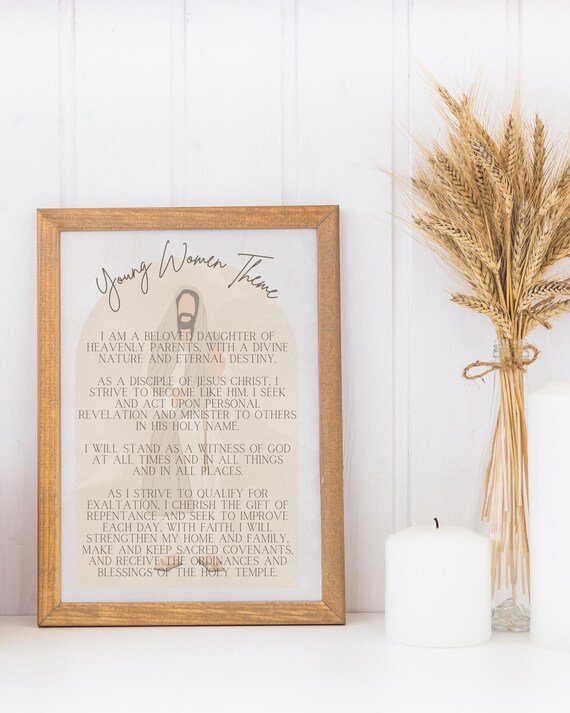 Young Women Theme
I AM A BELOVED DAUGHTER OF
HEAVENLY PARENTS, WITH A DIVINE
NATURE AND ETERNAL DESTINY.
AS A DISCIPLE OF JESUS CHRIST, I
STRIVE TO BECOME LIKE HIM. I SEEK
AND ACT UPON PERSONAL
REVELATION AND MINISTER TO OTHERS
IN HIS HOLY NAME.
I WILL STAND AS A WITNESS OF GOD
AT ALL TIMES AND IN ALL THINGS
AND IN ALL PLACES.
AS I STRIVE TO QUALIFY FOR
EXALTATION, I CHERISH THE GIFT OF
REPENTANCE AND SEEK TO IMPROVE
EACH DAY. WITH FAITH, I WILL
STRENGTHEN MY HOME AND FAMILY,
MAKE AND KEEP SACRED COVENANTS,
AND RECEIVE THE ORDINANCES AND
BLESSINGS OF THE HOLY TEMPLE.